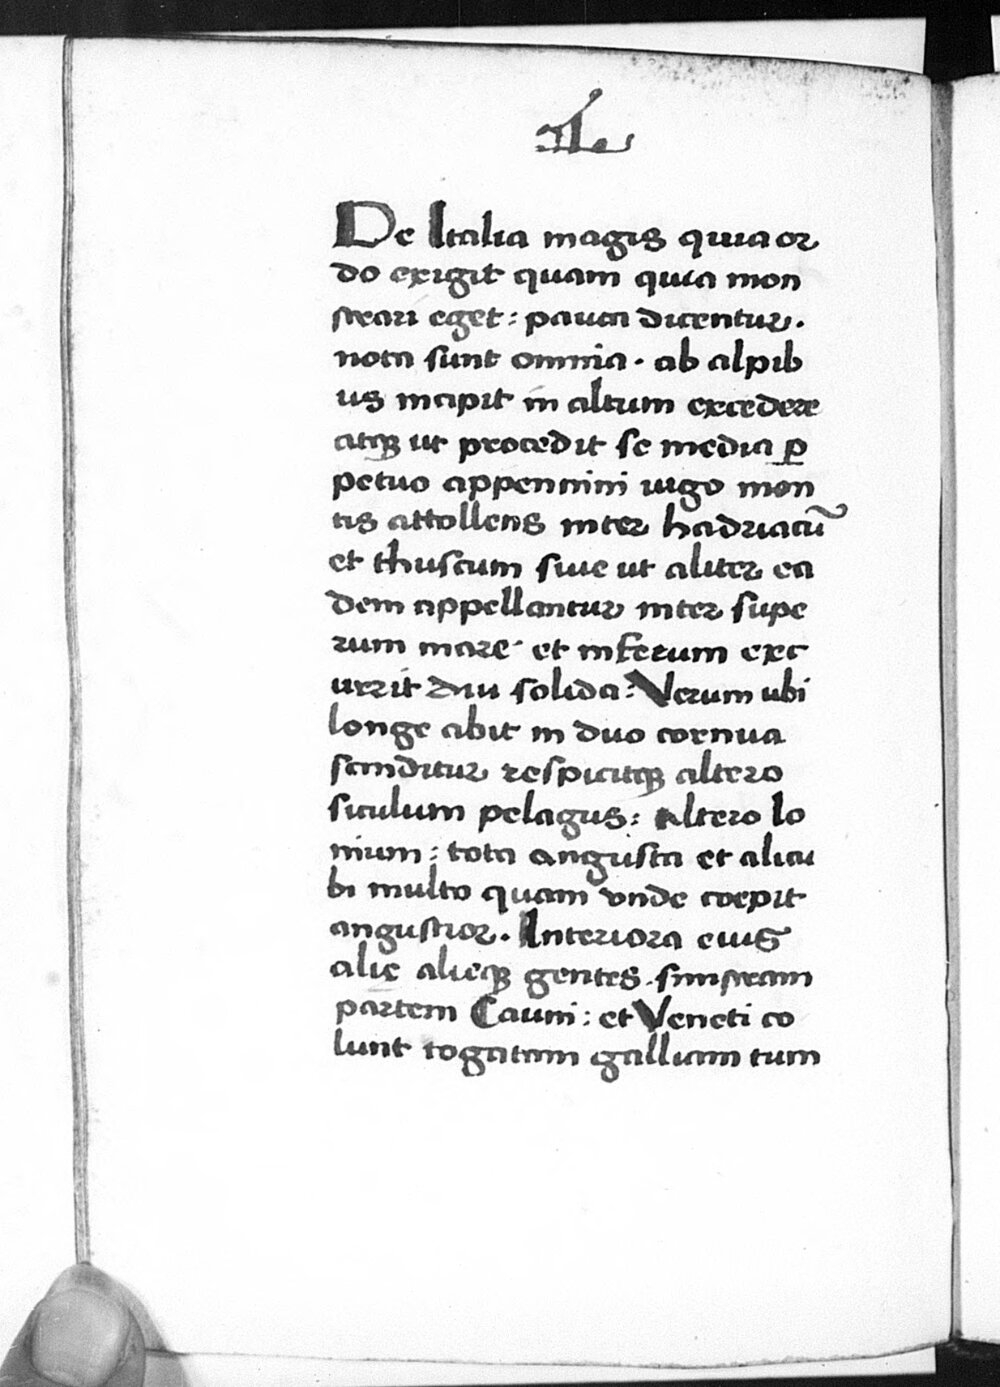 De Italia magis quia or
do exigit quam quia mon
strari eget : pauca dicentur .
nota sunt omnia . ab alpib
us incipit in altum excedere
atqꝫ ut procedit se media ꝑ
petuo appennini iugo mon
tis attollens inter hadriacũ
et thuscum siue ut aliter ea
dem appellantur inter supe
rum mare et inferum exc
urrit diu solida : Verum ubi
longe abit in duo cornua
scinditur respicitqꝫ altero
siculum pelagus : altero Io
nium : tota angusta et alicu
bi multo quam vnde coepit
angustior . Interiora eius
alie alieqꝫ gentes . sinistram
partem Cauni : et Veneti co
lunt togatam galliam tum